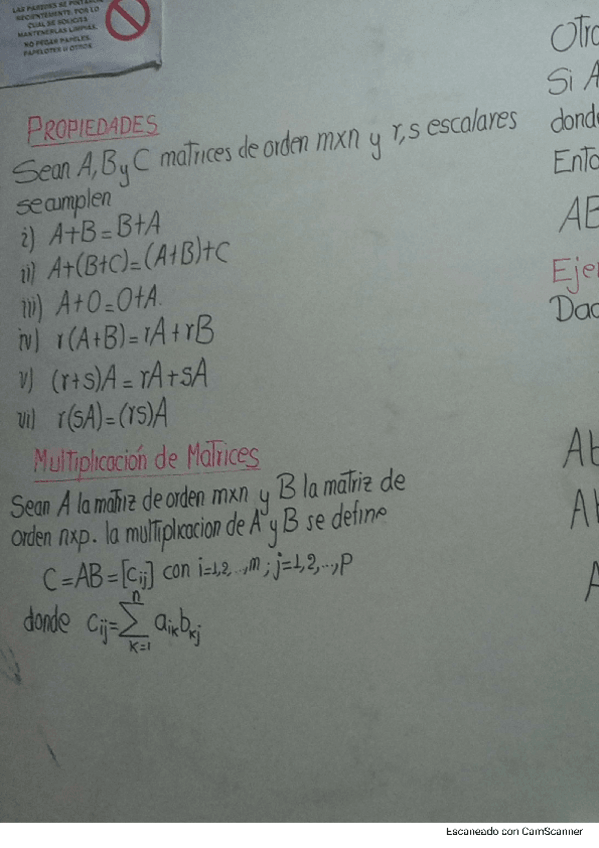 LAS PAREDES SE PINTARON
RECIENTEMENTE, POR LO
CUAL SE SOLICITA
MANTENERLAS LIMPIAS.
NO PEGAR PAPELES,
PAPELOTES U OTROS.
PROPIEDADES
Sean A, B y C matrices de orden mxn y r,s escalares
se cumplen
i) A+B=B+A
ii) A+(B+C)=(A+B)+C
iii) A+0=0+A.
iv) r(A+B)=rA+rB
v) (r+s)A=rA+sA
vi) r(sA)=(rs)A
Multiplicación de Matrices
Sean A la matriz de orden mxn y B la matriz de
orden nxp. la multiplicacion de A y B se define
C=AB=[cij] con i=1,2,...,m; j=1,2,...,p
donde cij=∑ⁿₖ₌₁ aikbkj
Otro
Si A
dond
Ento
AB
Ejer
Dad
Ab
A
A
Escaneado con CamScanner